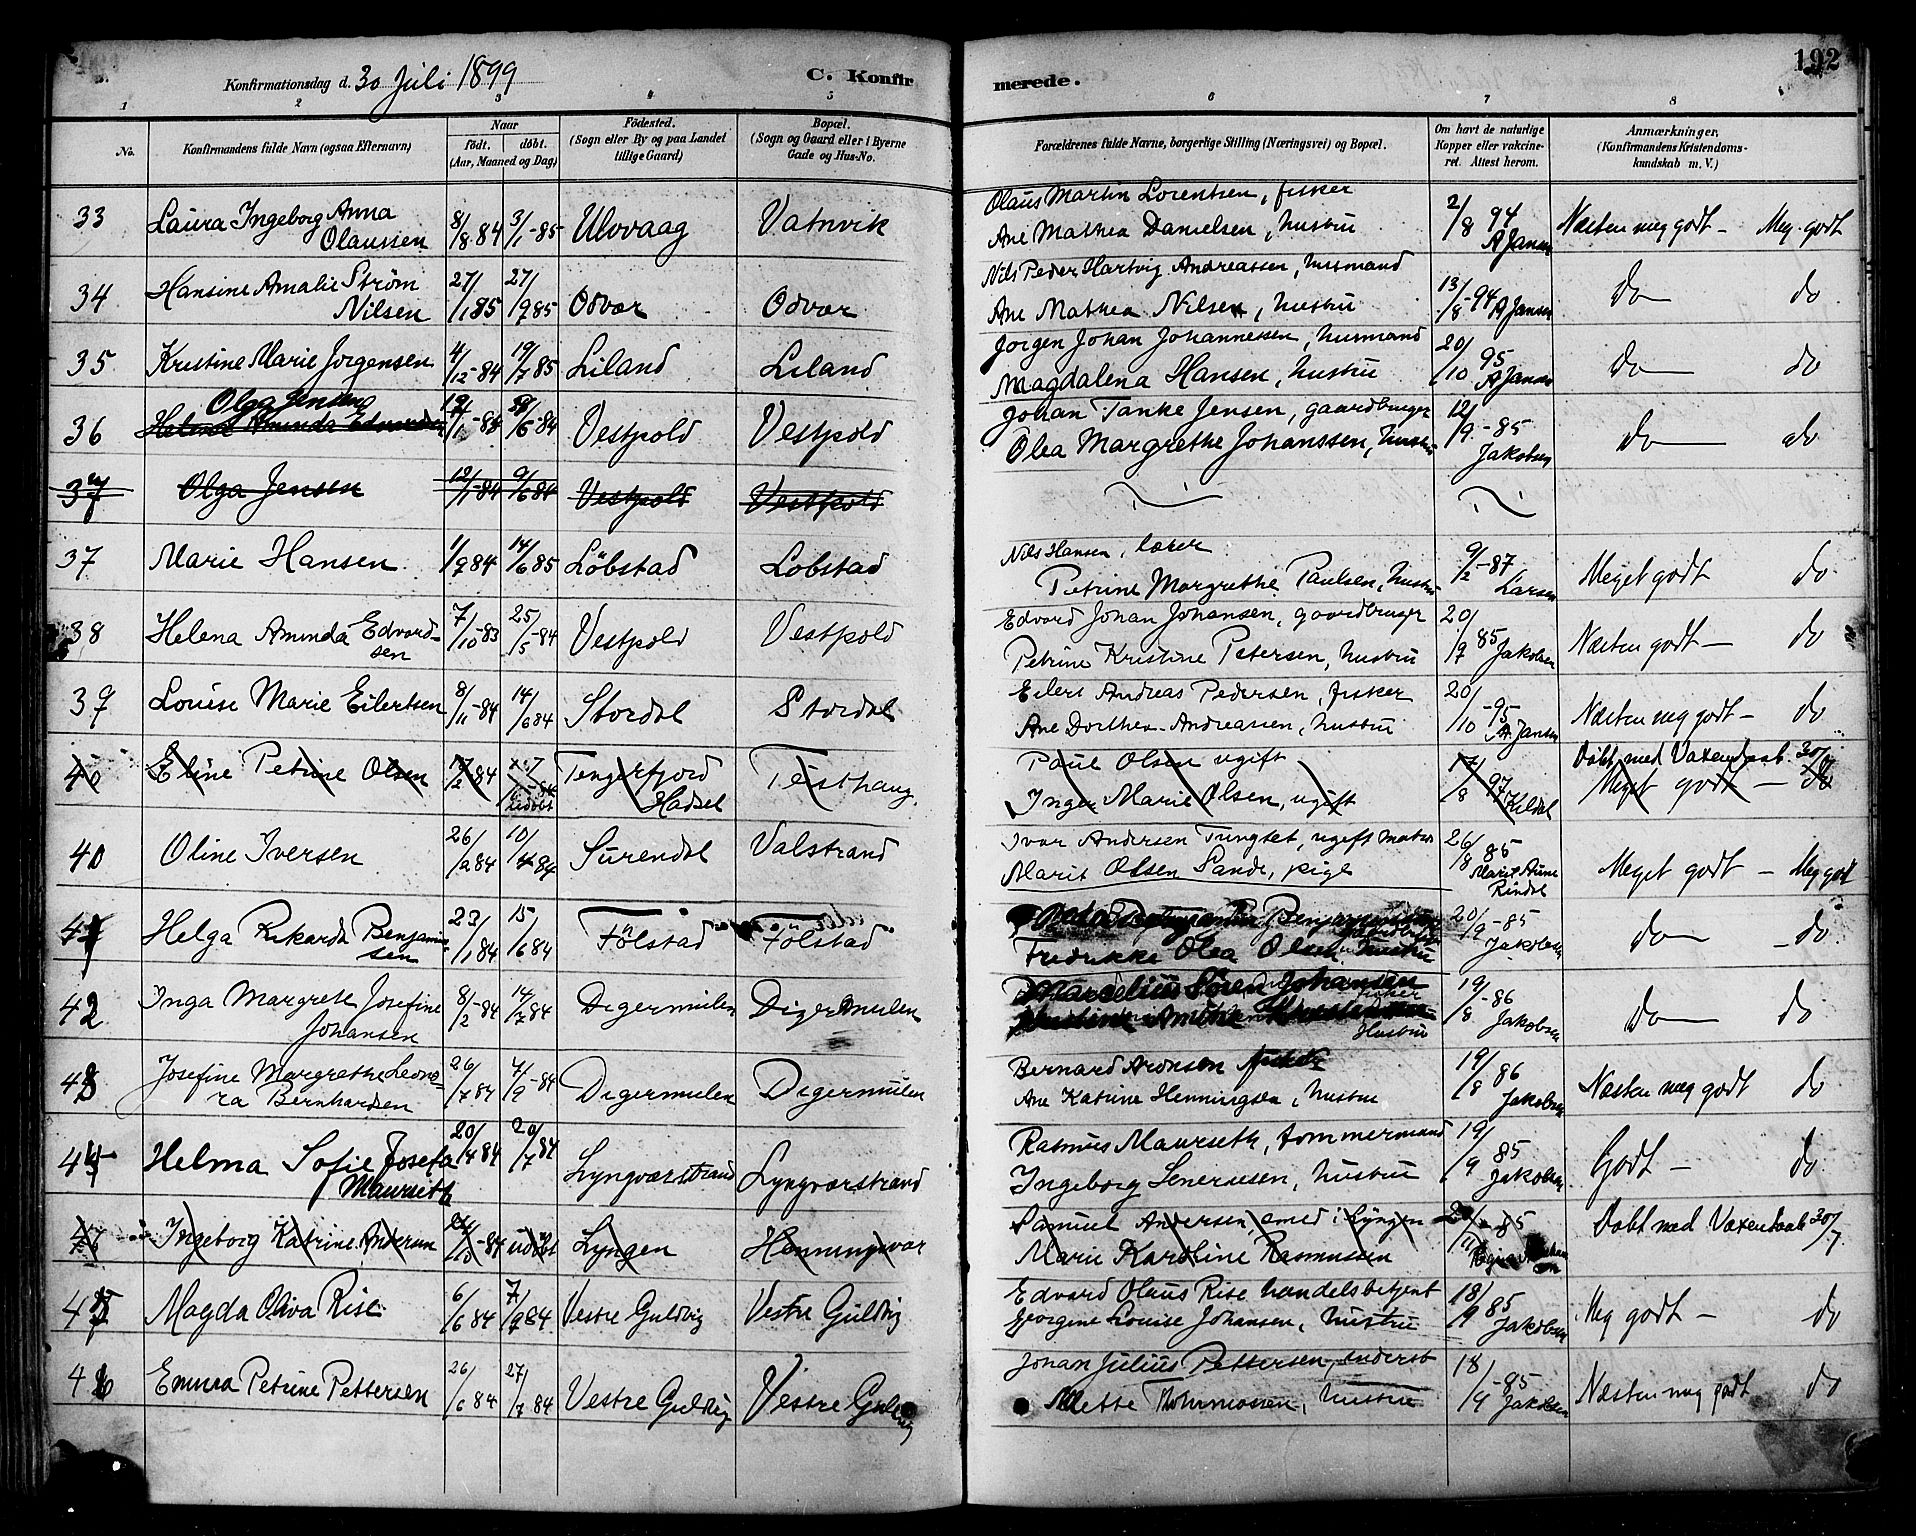 192
Konfirmationsdag d. 30 Juli 1899
C. Konfirmerede.
1 2 3 4 5 6 7 8
No. Konfirmandens fulde Navn (ogsaa Efternavn) Naar født. døbt. (Aar, Maaned og Dag) Fødested. (Sogn eller By og paa Landet tillige Gaard) Bopæl. (Sogn og Gaard eller i Byerne Gade og Hus-No. Forældrenes fulde Navne, borgerlige Stilling (Næringsvei) og Bopæl. Om havt de naturlige Kopper eller vakcineret. Attest herom. Anmærkninger. (Konfirmandens Kristendomskundskab m. V.)
33 Laura Ingeborg Anna Olaussen 8/8 84 3/1-85 Ulvvaag Vatnvik Olaus Martin Lorentsen, fisker
Ane Mathea Danielsen, hustru 2/8 94 A Jansen Næsten meg godt - Meg. godt
34 Hansine Amalie Strøm Nilsen 27/1 85 27/9 85 Odvær Odvær Nils Peder Hartvig Andreassen, husmand
Ane Mathea Nilsen, hustru 13/8-94 A Jansen do do
35 Kristine Marie Jørgensen 4/12-84 19/7 85 Liland Liland Jørgen Johan Johannessen, husmand
Magdalena Hansen, hustru 20/10 95 A Jansen do do
36 Olga Jensen
Helena Aminda Edvardsen Vestpold Vestpold Johan Tanke Jensen, gaardbruger
Olea Margrethe Johanssen, hustru 12/9-85 Jakobsen do do
37 Olga Jensen 12/1-84 9/6 84 Vestpold Vestpold
37 Marie Hansen 1/9 84 14/6 85 Løbstad Løbstad Nils Hansen,
Petrine Margrethe Paulsen, hustru 9/2-87 Larsen Meget godt do
38 Helena Aminda Edvardsen 7/10-83 25/5-84 Vestpold Vestpold Edvard Johan Johansen, gaardbruger
Petrine Kristine Petersen, hustru 20/9 85 Jakobsen Næsten godt - do
39 Louise Marie Eilertsen 8/11-84 14/6 84 Stordal Stordal Eilert Andreas Pedersen, fisker
Ane Dorthea Andreassen, hustru 20/10-95 A. Jansen Næsten meg godt - do
40 Eline Petrine Olsen Tengerfjord Hadsel Paul Olsen ugift
Inger Marie Olsen, ugift 17/8 97 Kildal Døbt med Vaxendaab 30/7 Meget godt - do
40 Oline Iversen 26/2 84 10/4 84 Surendal Valstrand Ivar Andersen Tungtet, ugift
Marit Olsen Sande, pige 26/8 85 Marit Aune Rindal Meget godt - Meg godt
41 Helga Rikarda Benjaminsen 23/1 84 15/6 84 Fölstad Fölstad
Fredrikke Olea Olsen hustru 20/9-85 Jakobsen do - do
42 Inga Margrete Josefine Johansen 8/2-84 14/7 84 Digermulen Digermulen Marcelius Søren Johansen fisker
Hustru 19/8-86 Jakobsen do do
43 Josefine Margrethe Leonora Bernhardsen 26/7 84 4/9-84 Digermulen Digermulen Bernard Aronsen fisker
Ane Katrine Henningsen, hustru 19/8 86 Jakobsen Næsten meg godt do
44 Helma Sofie Josefa Maurseth 20/4 84 20/7 84 Lyngværstrand Lyngværstrand Rasmus Maurseth, tømmermand
Ingeborg Senersen, hustru 19/9 85 Jakobsen Godt - do
Ingeborg Katrine Andersen udøbt Lyngen Henningsvær Samuel Andersen, smed i Lyngen
Marie Karoline Rasmussen Døbt med Vaxendaab 30/7
45 Magda Oliva Rise 6/6 84 7/9 84 Vestre Guldvig Vestre Guldvig Edvard Olaus Rise handelsbetjent
Georgine Louise Johansen, hustru 18/9 85 Jakobsen Meg godt - do
46 Emma Petrine Pettersen 26/6 84 27/7 84 Vestre Guldvig Vestre Guldvig Johan Julius Pettersen,
Mette Thormossen, hustru 18/9-85 Jakobsen Næsten meg godt do